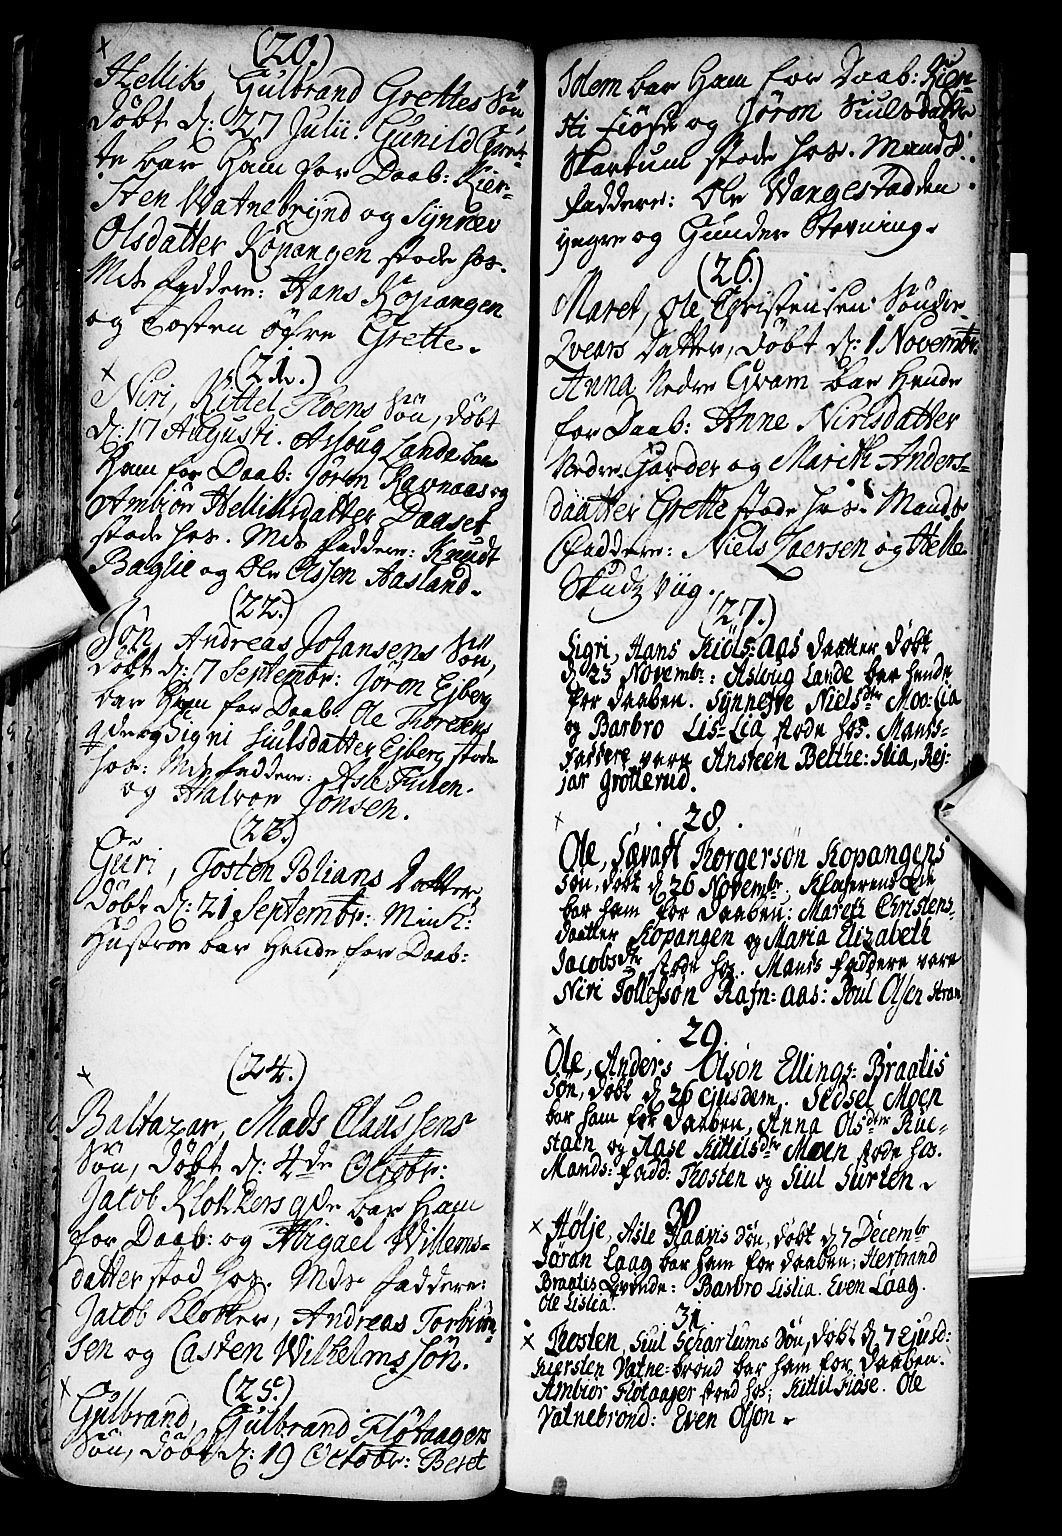 (20.)
Hellik, Gulbrand Grettes Søn
döbt d: 27 Julii. Gunild Gret-
te bar Ham for Daab: Kier-
sten Watnebrynd og Synnev
Olsdatter Kopangen stode hos.
Mds faddere: Hans Kopangen
og Tosten öfre Grette.
(21de.)
Niri, Kittel Floens Sön, döbt
d: 17 Augusti. Asloug Landa bar
Ham for Daab: Jøron Ravnaas og
Ambiör Helliksdatter Daaset
stode hos. Mds faddere: Knudt
Baglie og Ole Olssen Aasland.
(22.)
Jön, Andreas Johansens Sön,
döbt d: 7 Septembr: Jøron Ejberg
bar Ham for Daab. Ole Thoresens
qde og Signi Siulsdatter Ejberg stode
hos: Mds faddere: Asle Fulen.
og Halvor Jonsen.
(23.)
Guri, Tosten Blians Datter,
döbt d: 21 Septembr: Min K:
Hustroe bar Hende for Daab:
(24.)
Baltazar, Mads Claussens
Sön, döbt d: 4de Octobr:
Jacob Klokkers qde bar Ham
for Daab: og Abigael Willems-
datter stod hos. Mds faddere:
Jacob Klokker, Andreas Torbiörn-
sen og Casten Wilhelmssön.
(25.)
Gulbrand, Gulbrand Flötaagers
Sön, döbt d: 19 Octobr: Beret
Idem bar Ham for Daab: Kier-
sti fiöse og Jöron Siulsdatter
Skartum stode hos. Mands
faddere: Ole Wangestadden
yngre og Gunder Stevning.
(26.)
Maret, Ole Christensen Söndre-
Qvears Datter, döbt d: 1 Novembr:
Anna Nedre Gvam bar Hende
for Daab: Anne Nirisdatter
Nedre Garder og Marith Anders-
daatter Grette stode hos. Mands
faddere: Niels Laersen og Helle
Skudz Viig.
(27.)
Sigri, Hans Kiöls-aas daatter döbt
d 23 Novembr: Asloug Lande bar hende
for daaben. Synneve Nielsdtr Moe-Lia
og Barbro Lis-Lia stode hos. Mands-
faddere vare Ansteen Belthe: Stia, Rej-
jar Grotterud.
28.
Ole, Sævatt Thorgerson Kopangens
Søn, döbt d 26 Novembr. Klokerens qde
bar ham for daaben: Mareti Christens-
daatter Kopangen og Maria Elizabeth
Jacobsdtr stode hos. Mands faddere vare
Niri Tollefson Rafn: aas: Poul Olsen Stran
29.
Ole, Anders Olson Ellings-Braatis
Søn, döbt d 26 ejusdem. Sidsel Moen
bar ham for daaben, Anna Olsdtr Rue-
staen og Aase Kittilsdtr Moen stode hos.
Mands: fadd: Thosten og Siul Surten.
30
Hölje, Asle Haavis Søn, döbt d 7 Decembr
Jøran Laag bar ham for daaben: Herbrand
Braatis Qvinde: Barbro Lislia. Even Laag.
Ole Lislia.
31
Thosten, Siul Schartums Søn, döbt d 7 Ejusd:
Kiersten Vatne-brond bar ham for daaben.
Ambior Flotaager stod hos: Kittil Fiøse. Ole
Vatnebrond: Even Olson.